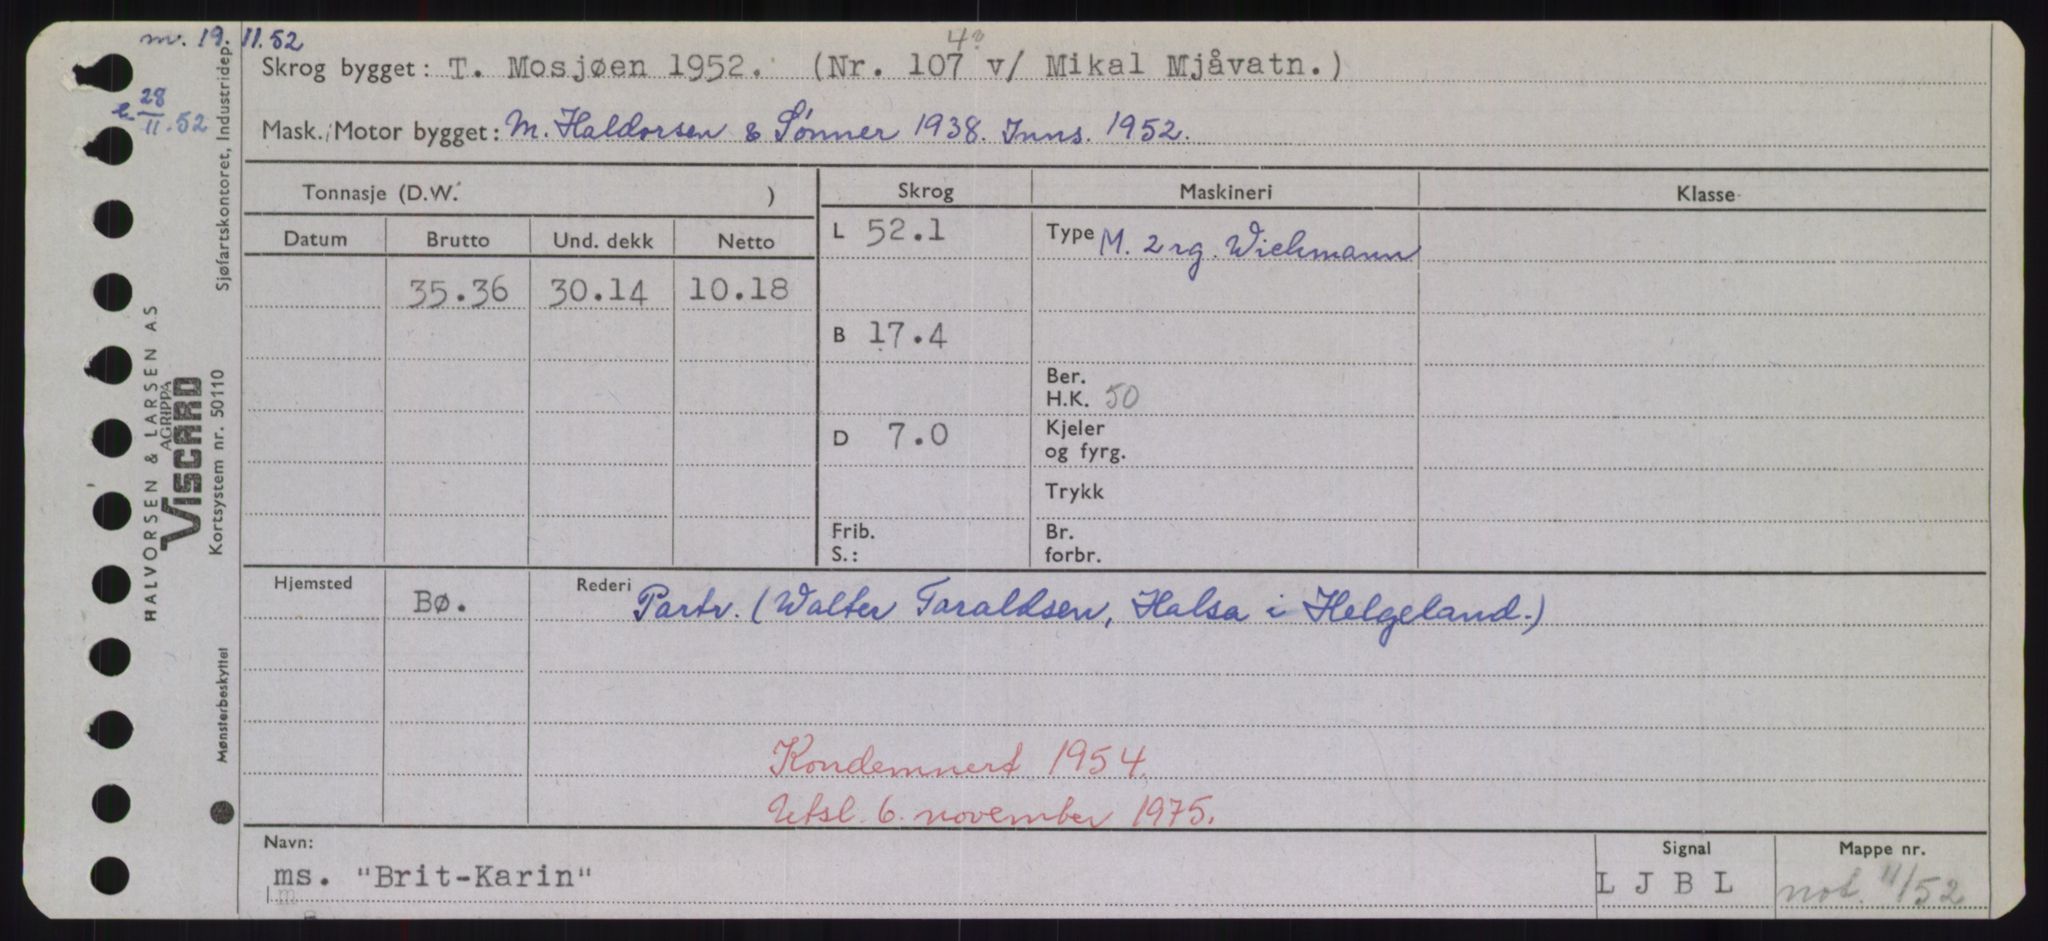 m. 19.11.52
Skrog bygget: T. Mosjøen 1952. (Nr. 107 v/ Mikal Mjåvatn.)
28
II.52
Mask./Motor bygget: M. Haldorsen & Sønner 1938. Inns. 1952.
Tonnasje (D.W. ) Skrog Maskineri Klasse
Datum Brutto Und. dekk Netto L 52.1 Type M. 2 rg. Wichmann
35.36 30.14 10.18
B 17.4
Ber.
H.K. 50
D 7.0 Kjeler
og fyrg.
Trykk
Frib. Br.
S.: forbr.
Hjemsted Bø. Rederi Partr. (Walter Taraldsen, Halsa i Helgeland.)
Kondemnert 1954.
Utsl. 6. november 1975.
Navn: Signal Mappe nr.
ms. "Brit-Karin" L J B L not. 11/52
Sjøfartskontoret, Industridep.
HALVORSEN & LARSEN A.S
AGRIPPA
VISCARD
Kortsystem nr. 50110
Mønsterbeskyttet